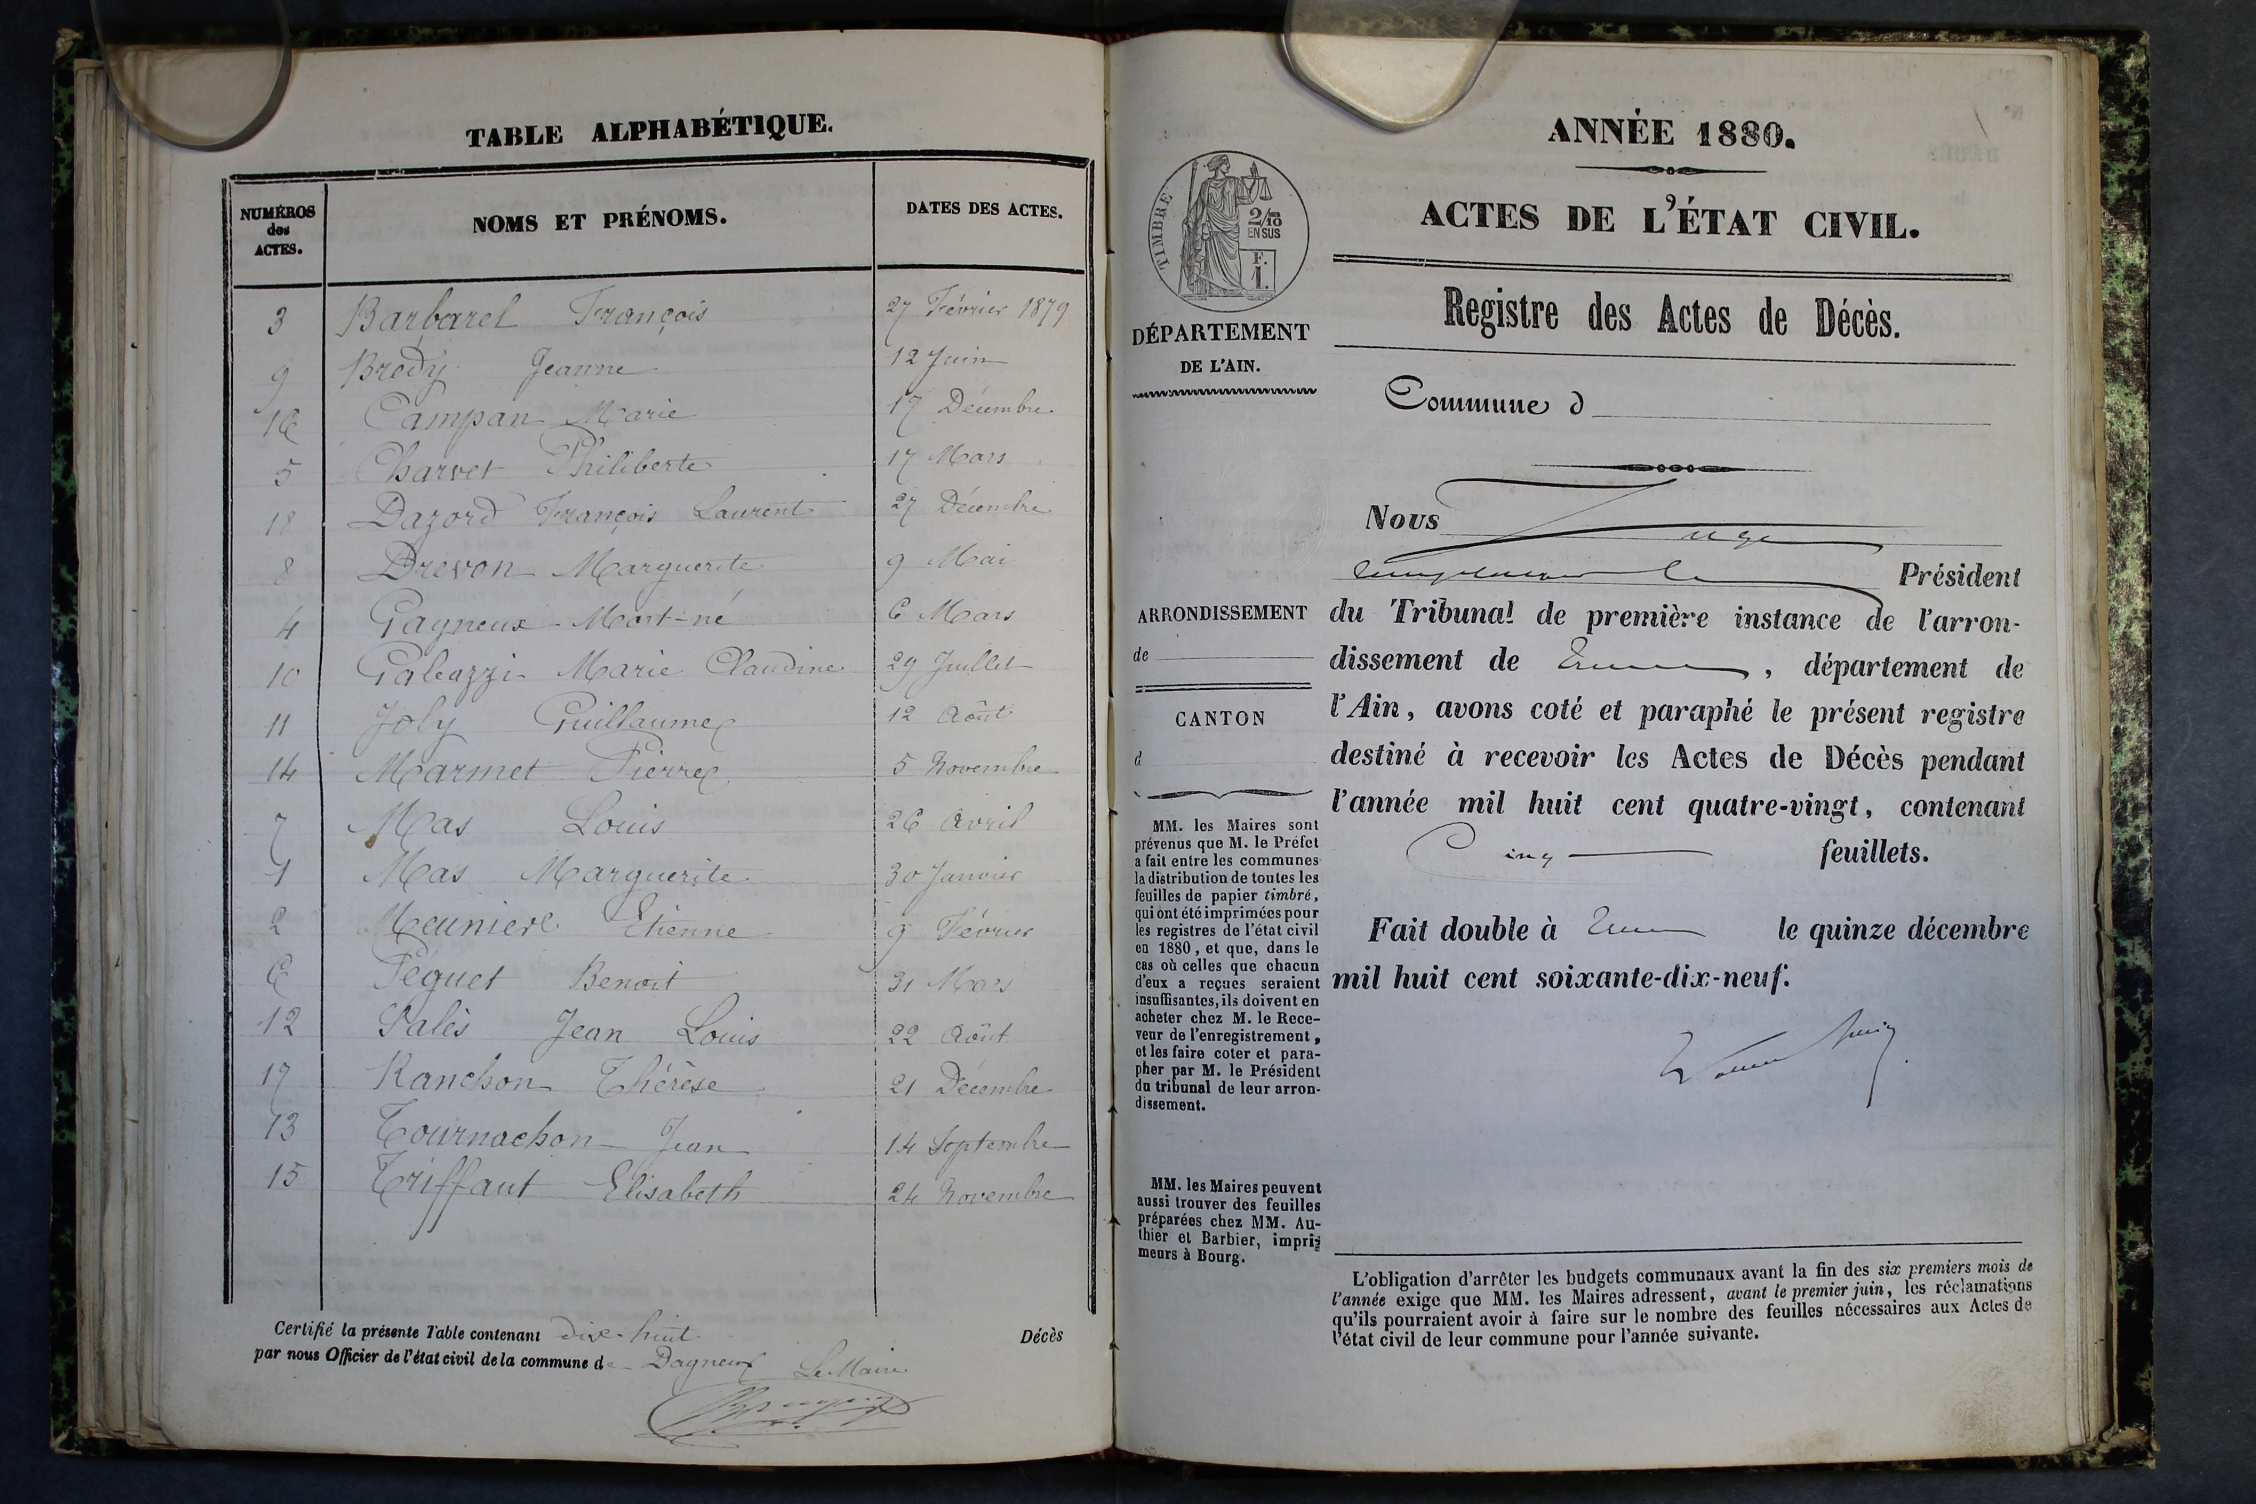 TABLE ALPHABÉTIQUE.
NUMÉROS des ACTES. NOMS ET PRÉNOMS. DATES DES ACTES.
3 Barbarel François 27 Février 1879
9 Brody Jeanne 12 Juin
16 Campan Marie 17 Décembre
5 Charvet Philiberte 17 Mars
18 Dazord François Laurent 27 Décembre
8 Drevon Marguerite 9 Mai
4 Gagneux Mort-né 6 Mars
10 Galeazzi Marie Claudine 29 Juillet
11 Joly Guillaume 12 Août
14 Marmet Pierre 5 Novembre
7 Mas Louis 26 Avril
1 Mas Marguerite 30 Janvier
2 Meunier Etienne 9 Février
6 Péguet Benoit 31 Mars
12 Palès Jean Louis 22 Août
17 Ranchon Thérèse 21 Décembre
13 Tournachon Jean 14 Septembre
15 Triffaut Elisabeth 24 Novembre
Certifié la présente Table contenant dix-huit Décès
par nous Officier de l'état civil de la commune de Dagneux Le Maire
ANNÉE 1880.
ACTES DE L'ÉTAT CIVIL.
TIMBRE
2/10
EN SUS
F.
1.
DÉPARTEMENT
DE L'AIN.
Registre des Actes de Décès.
Commune d
ARRONDISSEMENT
de
CANTON
d
Nous Juge
Président
du Tribunal de première instance de l'arron-
dissement de , département de
l'Ain, avons coté et paraphé le présent registre
destiné à recevoir les Actes de Décès pendant
l'année mil huit cent quatre-vingt, contenant
Cinq feuillets.
Fait double à le quinze décembre
mil huit cent soixante-dix-neuf.
MM. les Maires sont
prévenus que M. le Préfet
a fait entre les communes
la distribution de toutes les
feuilles de papier timbré,
qui ont été imprimées pour
les registres de l'état civil
en 1880, et que, dans le
cas où celles que chacun
d'eux a reçues seraient
insuffisantes, ils doivent en
acheter chez M. le Rece-
veur de l'enregistrement,
et les faire coter et para-
pher par M. le Président
du tribunal de leur arron-
dissement.
MM. les Maires peuvent
aussi trouver des feuilles
préparées chez MM. Au-
thier et Barbier, impri-
meurs à Bourg.
L'obligation d'arrêter les budgets communaux avant la fin des six premiers mois de
l'année exige que MM. les Maires adressent, avant le premier juin, les réclamations
qu'ils pourraient avoir à faire sur le nombre des feuilles nécessaires aux Actes de
l'état civil de leur commune pour l'année suivante.